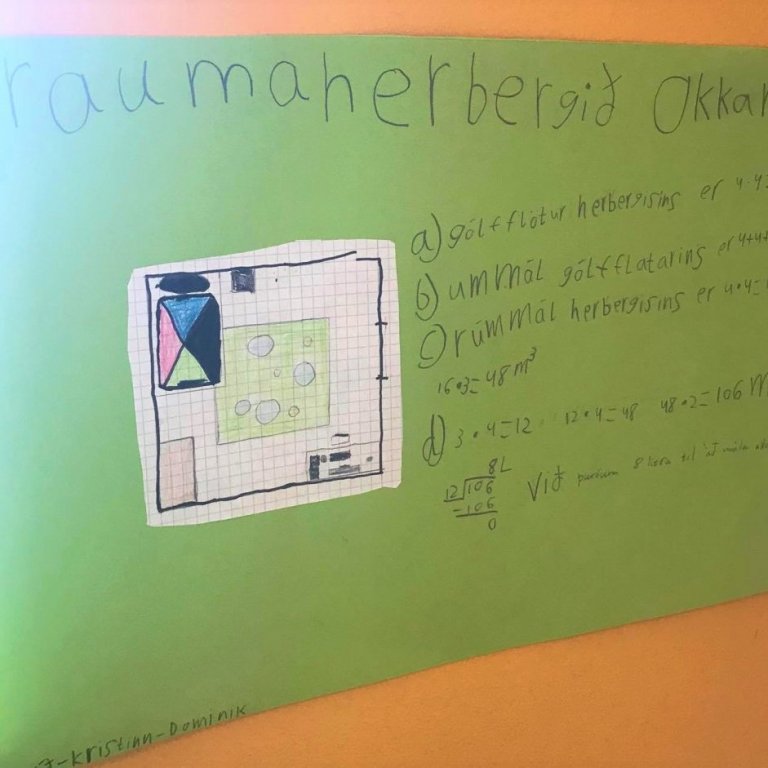 raumaherbergið Okkar
a) gólfflötur herbergisins er 4·4=
b) ummál gólfflatarins er 4+4+
c) rúmmál herbergisins er 4·4=
16·3=48m³
d) 3·4=12 12·4=48 48·2=106 m
8L
12 106
-106
0
Við þurfum 8 til að mála
-Kristinn-Dominik